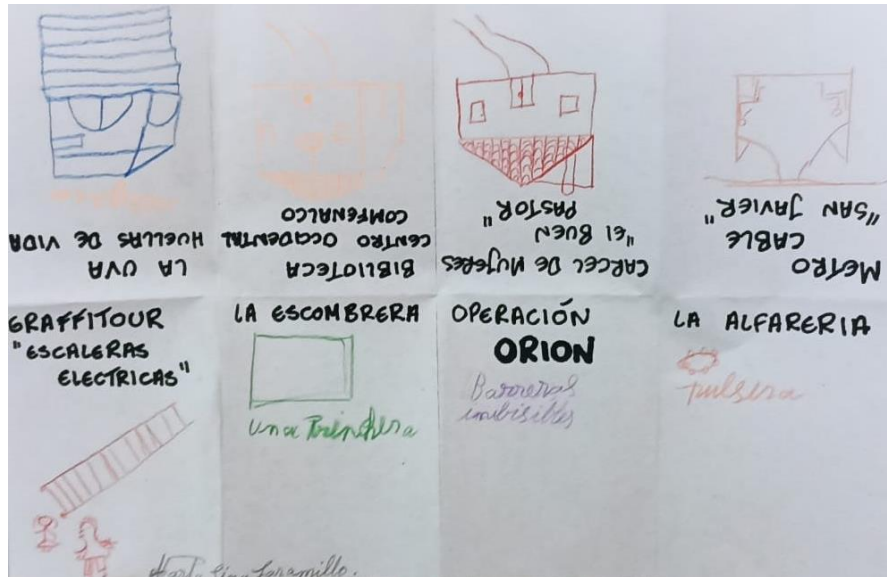 LA UVA
HUELLAS DE VIDA
BIBLIOTECA
CENTRO OCCIDENTAL
COMFENALCO
CARCEL DE MUJERES
"EL BUEN
PASTOR"
METRO
CABLE
"SAN JAVIER"
GRAFFITOUR
"ESCALERAS
ELECTRICAS"
LA ESCOMBRERA
una Trinchera
OPERACIÓN
ORION
Barreras
LA ALFARERIA
pulsera
Jaramillo.